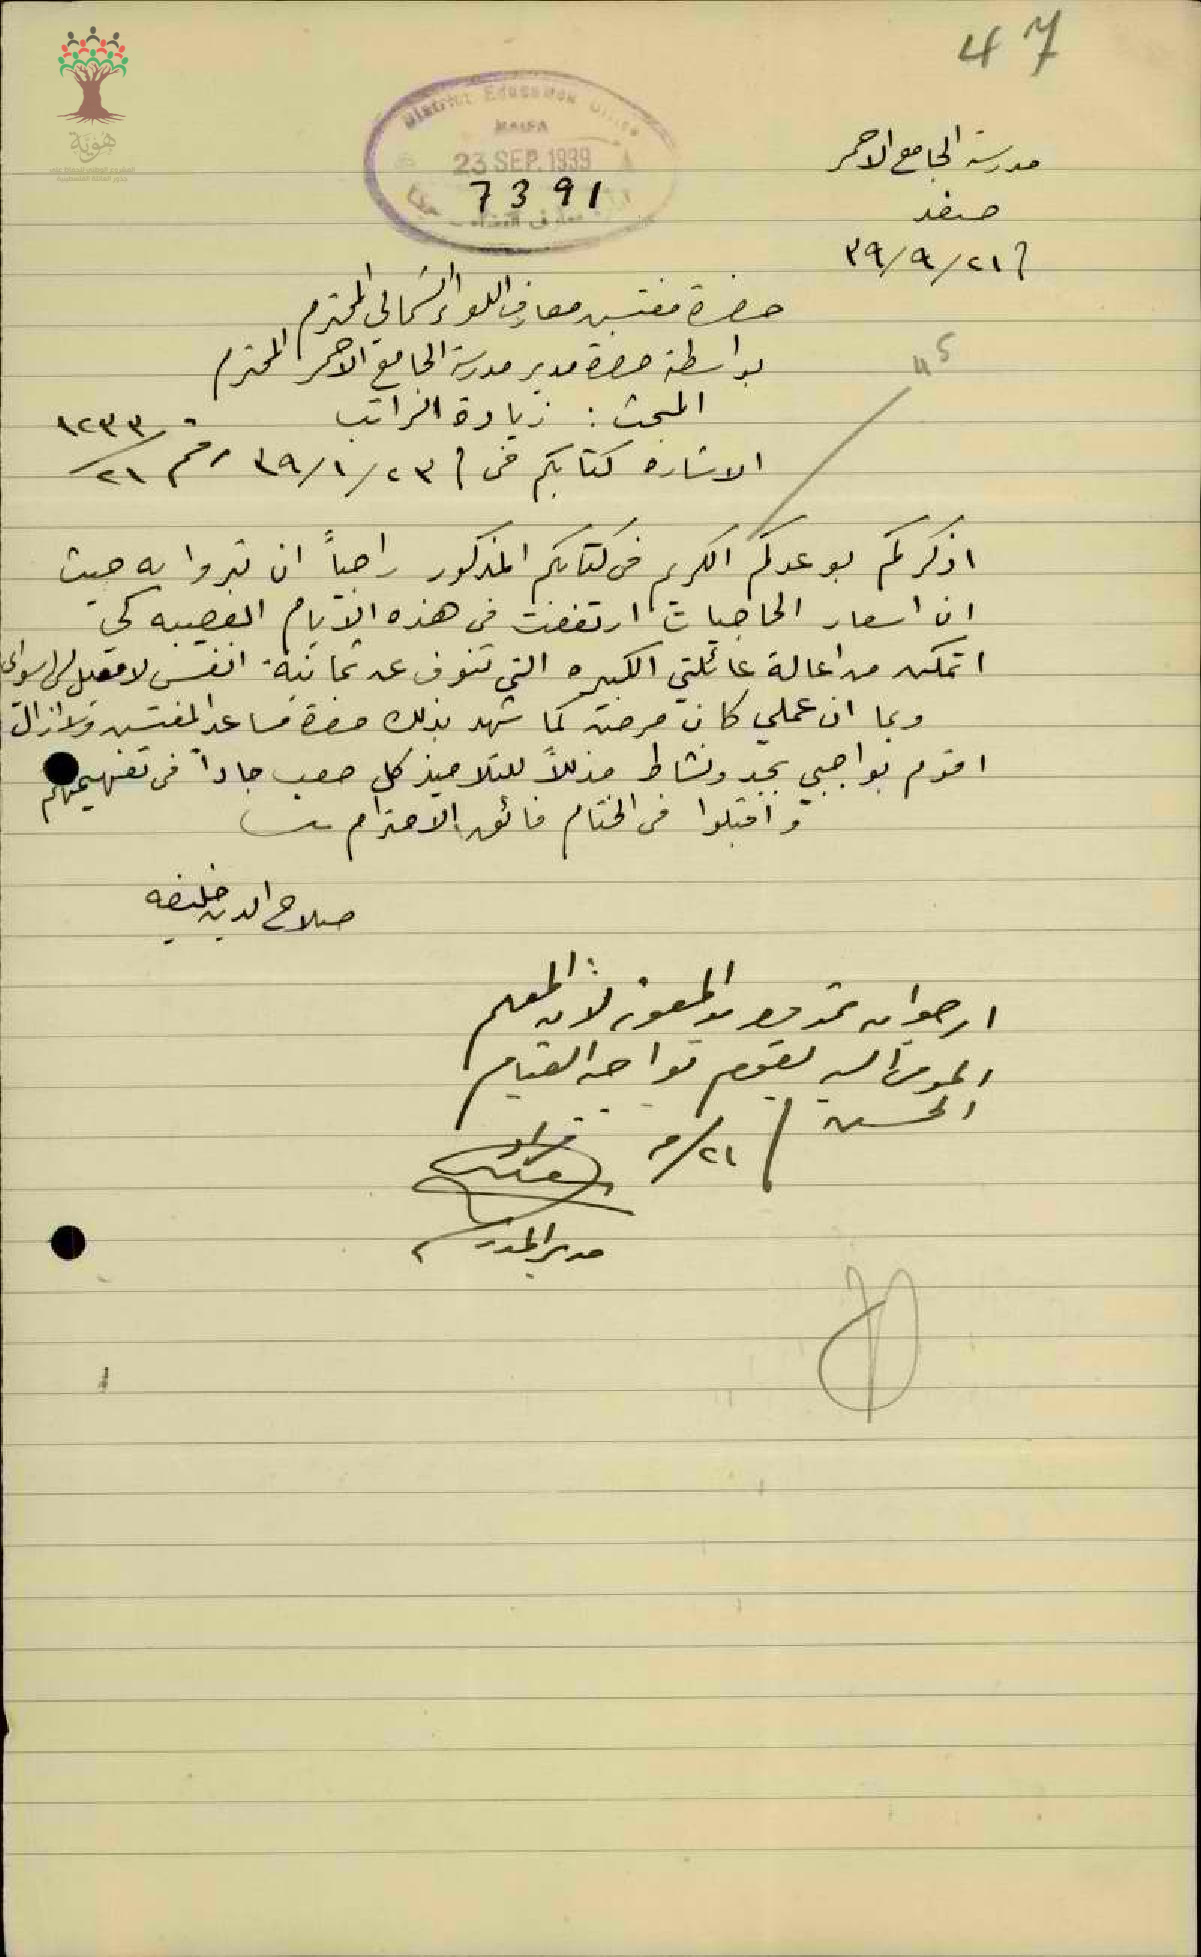 47
District Education Office
HAIFA
23 SEP. 1939
7391
مدرسة الجامع الاحمر
صفد
٣٩/٩/٢١
حضرة مفتش معارف اللواء الشمالي المحترم
بواسطة حضرة مدير مدرسة الجامع الاحمر المحترم
المبحث : زيادة الراتب
الاشاره كتابكم في ٣٩/١/٢٣ رقم ١٢٣٣/٢١
اذكركم بوعدكم الكريم في كتابكم المذكور راجياً ان تبروا به حيث
ان اسعار الحاجيات ارتفعت في هذه الايام العصيبه كي
اتمكن من اعالة عائلتي الكبيره التي تنوف عن ثمانية انفس لا معيل لها سواي
وبما ان عملي كان مرضٍ كما شهد بذلك حضرة مساعد المفتش ولا ازال
اقوم بواجبي بجد ونشاط مذللاً للتلاميذ كل صعب جاداً في تفهيمهم
و اقبلوا في الختام فائق الاحترام
صلاح الدين خليفه
ارجو ان تمدوه بالمعونه لأن المعلم
المومى اليه يقوم بواجبه القيام
الحسن
٩/٢١
مدير المدرسة